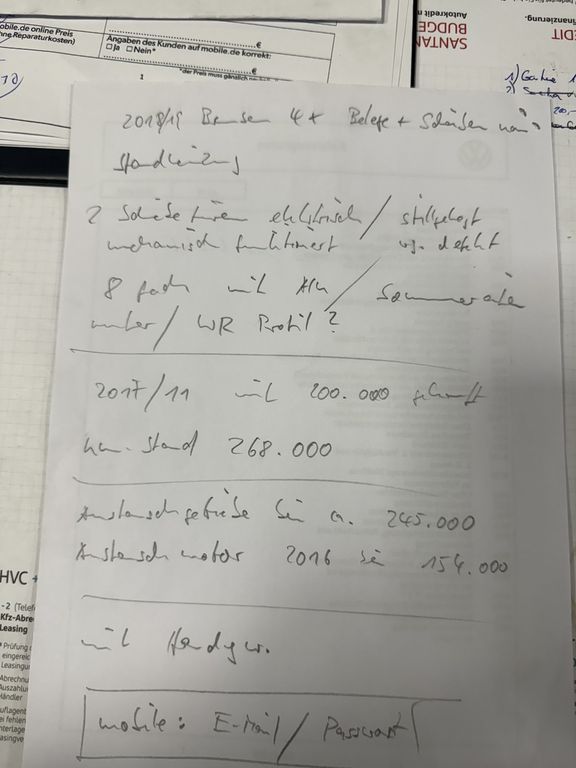 mobile.de online Preis
ohne Reparaturkosten)
€
Angaben des Kunden auf mobile.de korrekt:
□ Ja □ Nein*
€
*der Preis muss gänzlich
1
Autokredit
BUDGE
SANTAN
finanzierung.
EDIT
1)
2)
200,-
2018/19 Bremsen 4x Belege + Scheiben
Standheizung
2 Schiebetüren elektrisch / stillgelegt
mechanisch funktioniert wg. defekt
8 fach mit Alu / Sommerräder
unter / WR Profil ?
2017/11 mit 200.000 gekauft
km-Stand 268.000
Austauschgetriebe bei ca. 245.000
Austauschmotor 2016 bei 154.000
mit Handyw.
mobile: E-Mail / Passwort
HVC +
-2 (Telef
Kfz-Abre
Leasing
Prüfung
eingereic
Leasingu
Abrechnu
Auszahlu
Händler
uflagent
ei fehlen
nterlage
asingve